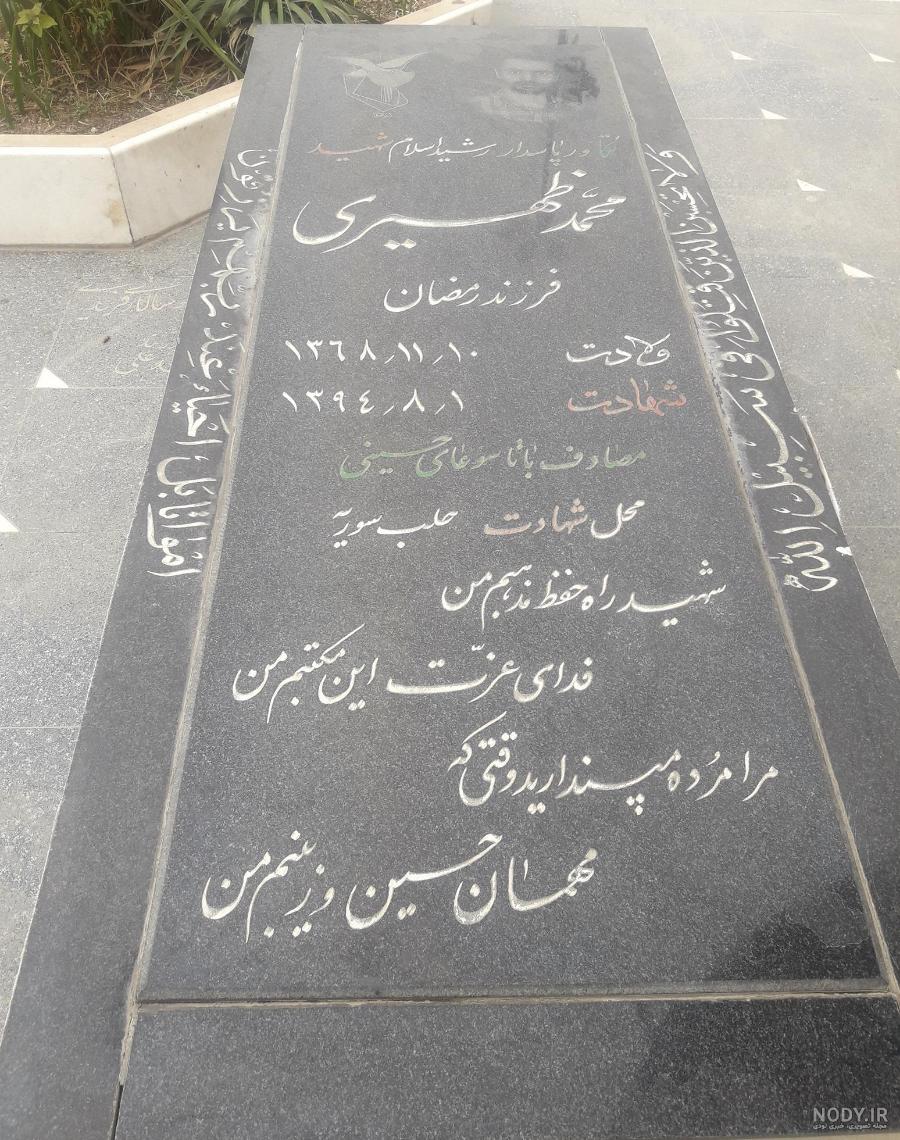 تکاور پاسدار رشید اسلام شهید
محمّد ظهیری
فرزند رمضان
ولادت ۱۳٦۸٫۱۱٫۱۰
شهادت ۱۳۹٤٫۸٫۱
مصادف با تاسوعای حسینی
محل شهادت حلب سوریه
شهید راه حفظ مذهبم من
فدای عزّت این مکتبم من
مرا مُرده مپندارید وقتی که
مهمان حسین و زینبم من
ولا تحسبن الذین قتلوا فی سبیل الله
امواتا بل احیاء عند ربهم یرزقون
NODY.IR
مجله تصویری، خبری نودی